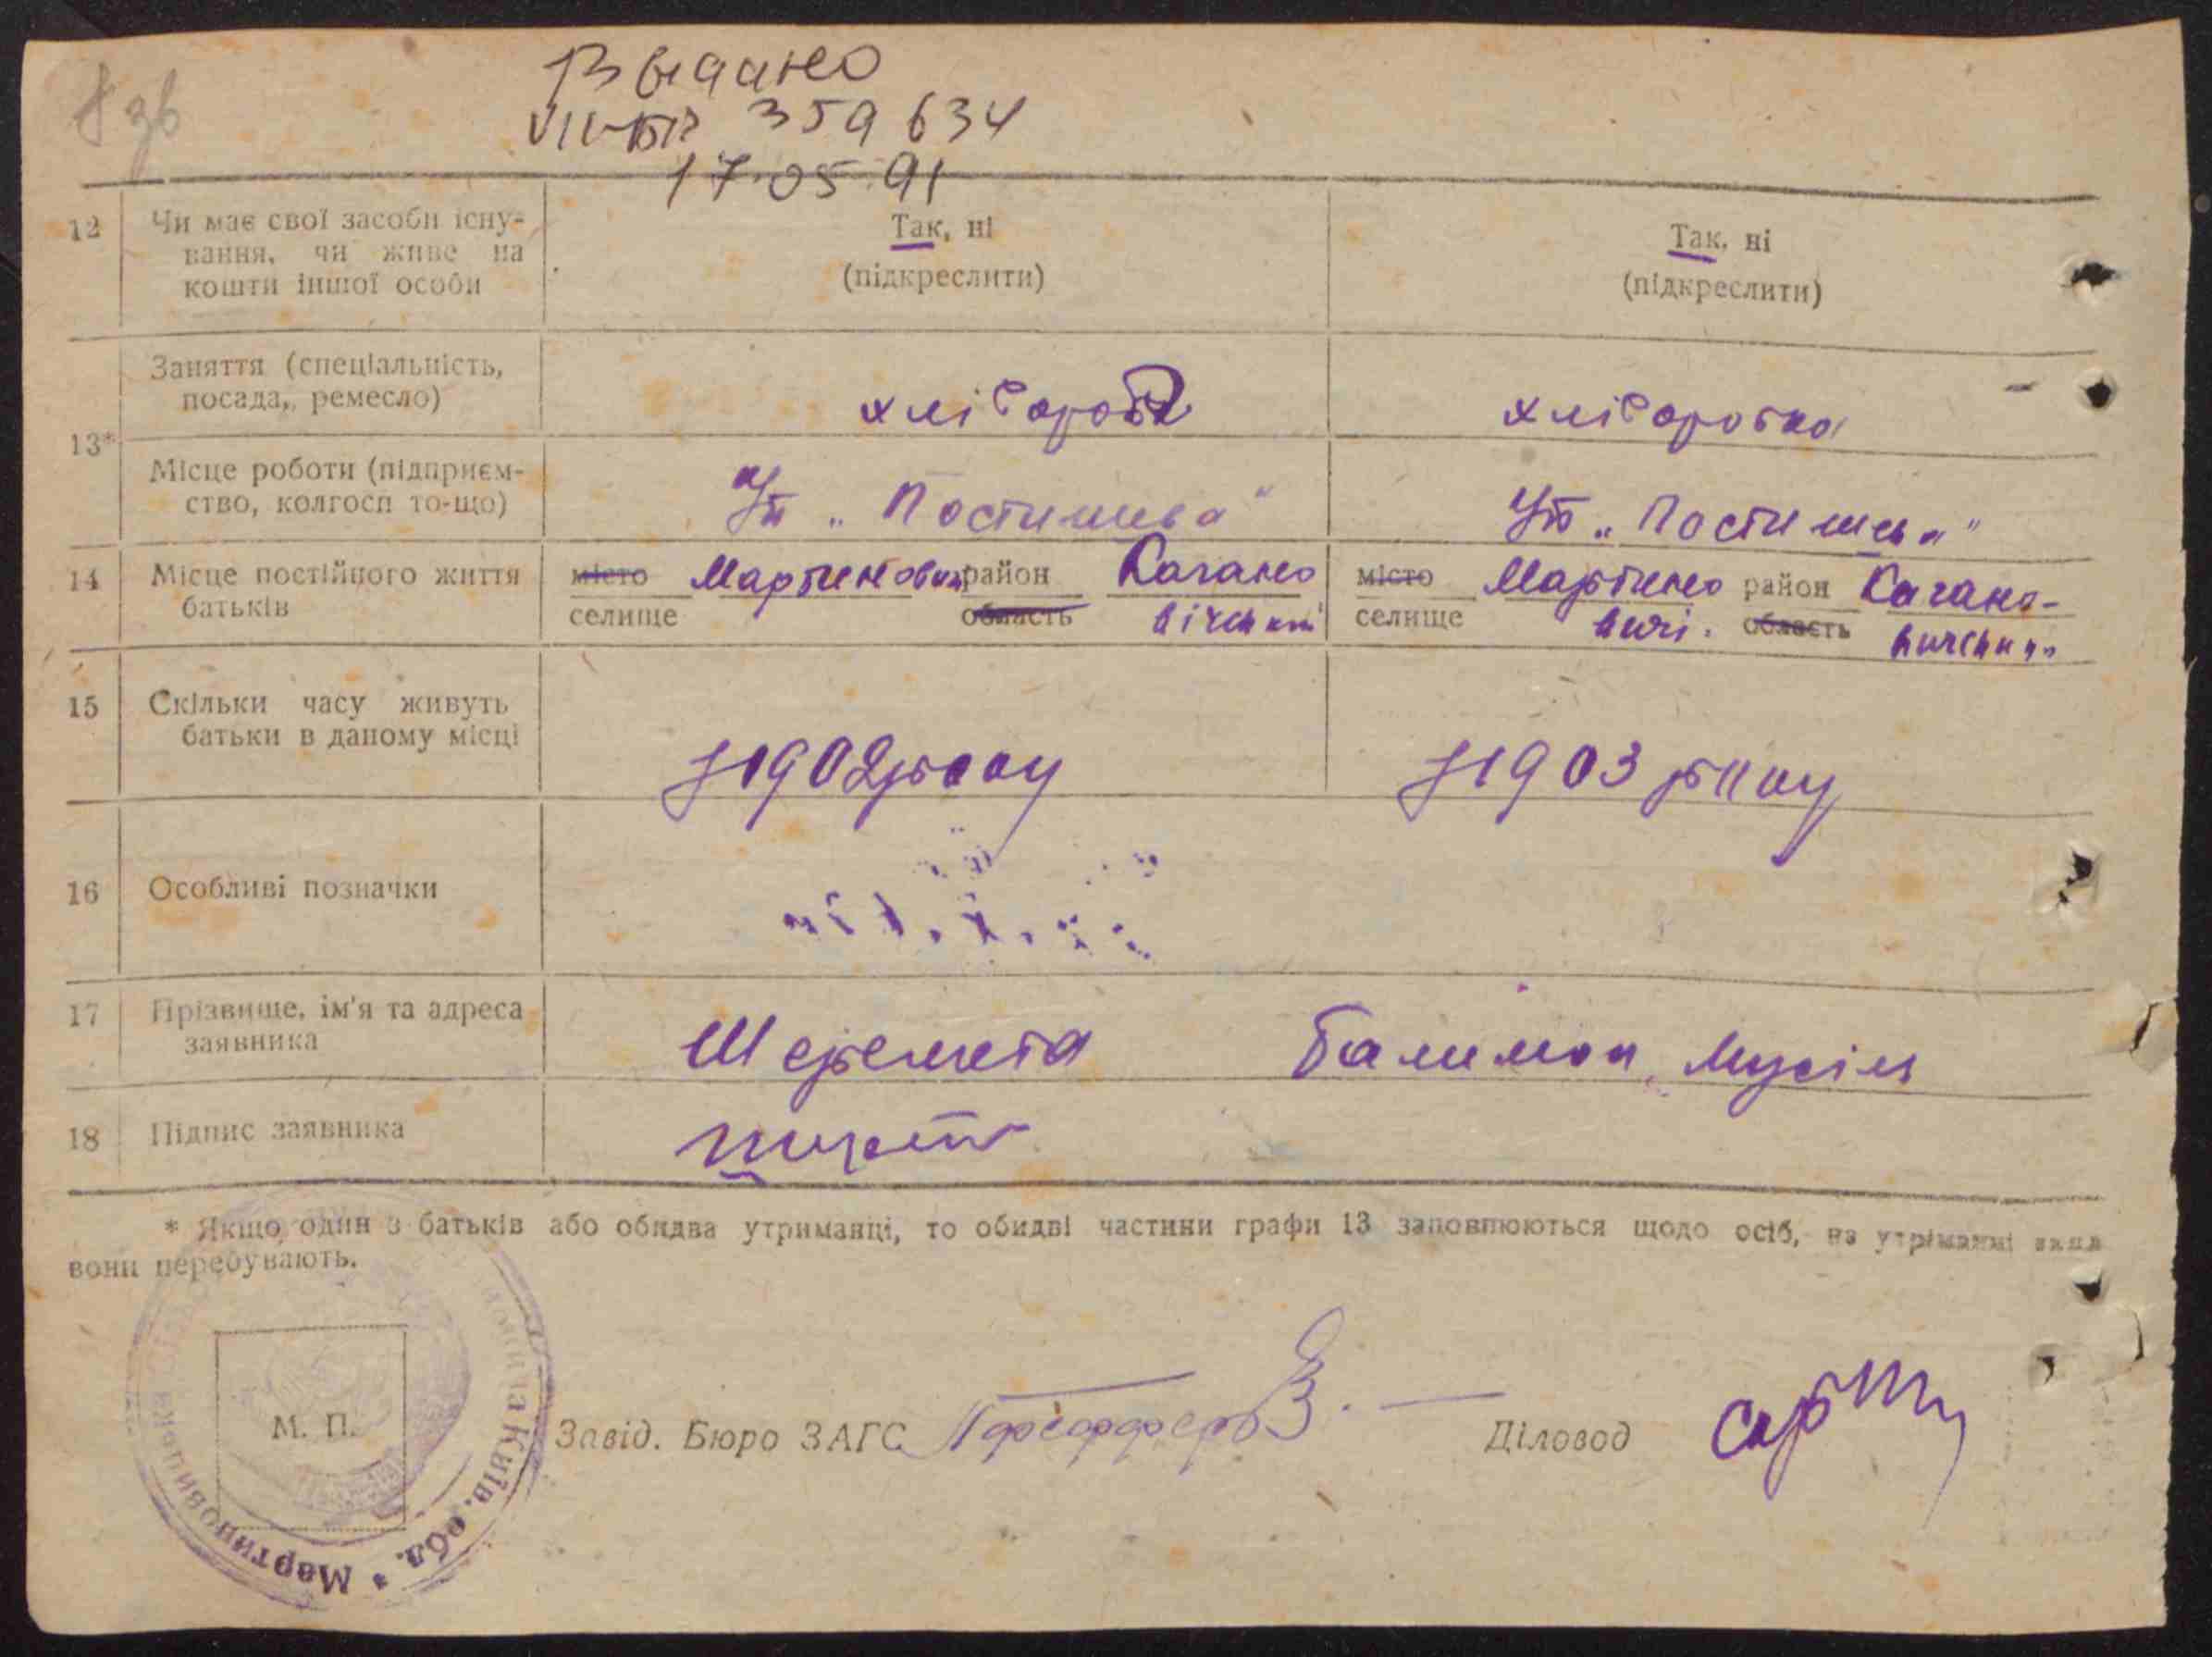 Выдано
359634
17.05.91
12 Чи має свої засоби існу-
вання, чи живе на
кошти іншої особи
Так, ні
(підкреслити)
Так, ні
(підкреслити)
13*
Заняття (спеціальність,
посада, ремесло)
хлібороб
хліборобка
Місце роботи (підприєм-
ство, колгосп то-що)
"Постишева"
"Постишева"
14 Місце постійного життя
батьків
місто Мартиновичі район Кагано
селище область вічський
місто Мартино район Кагано-
селище вичі. область вичський
15 Скільки часу живуть
батьки в даному місці
з 1902 року
з 1903 року
16 Особливі позначки
17 Прізвище, ім'я та адреса
заявника
Шеремета
18 Підпис заявника
* Якщо один з батьків або обидва утриманці, то обидві частини графи 13 заповнюються щодо осіб, на утриманні яких
вони перебувають.
М. П.
Київ. обл. * Мартиновицька
Завід. Бюро ЗАГС
Діловод